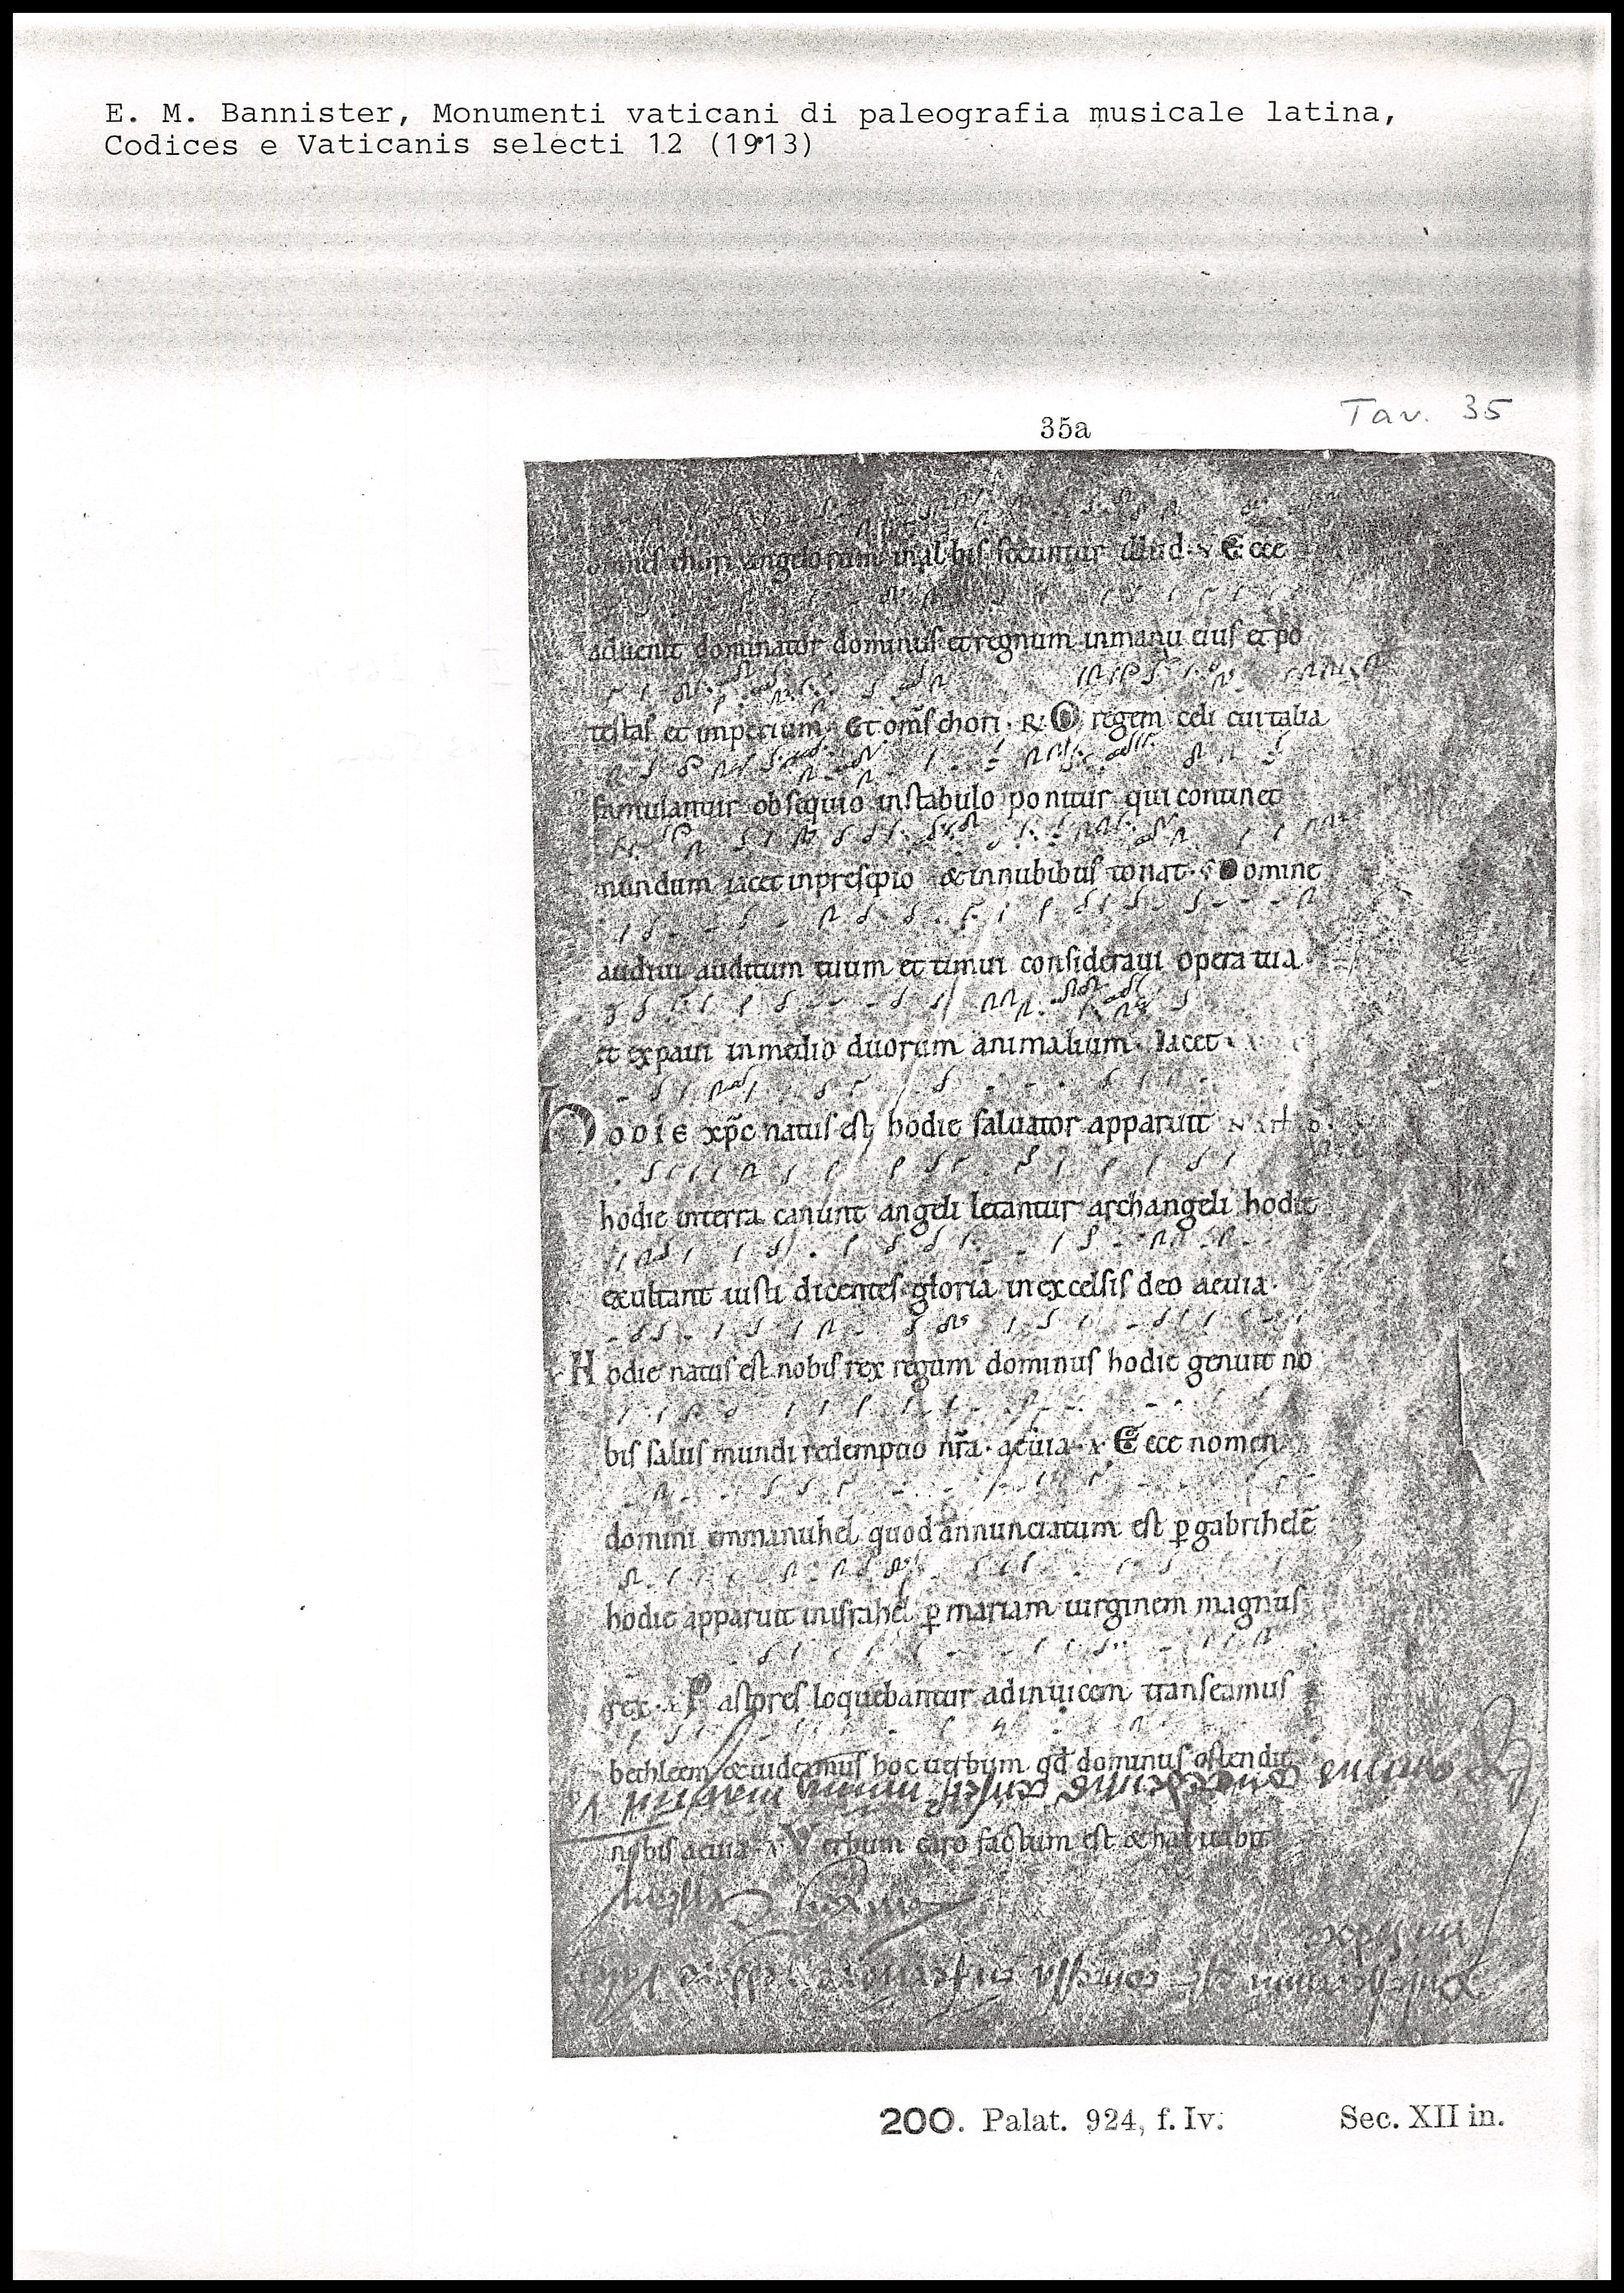 E. M. Bannister, Monumenti vaticani di paleografia musicale latina,
Codices e Vaticanis selecti 12 (1913)
Tav. 35
35a
chori angelorum in albis secuntur illud · v Ecce
aduenit dominator dominus et regnum inmanu eius et po
testas et imperium · Et om̄s chori · R. O regem celi cui talia
famulantur obsequio instabulo ponitur qui continet
mundum iacet inpresepio & innubibus tonat · v Domine
audiui auditum tuum et timui consideraui opera tua
et expaui inmedio duorum animalium · Iacet ·
Hodie xp̄c natus est hodie saluator apparuit
hodie interra canunt angeli letantur archangeli hodie
exultant iusti dicentes gloria inexcelsis deo aeuia ·
Hodie natus est nobis rex regum dominus hodie genuit no
bis salus mundi redemptio nr̄a · aeuia · v Ecce nomen
domini emmanuhel quod annunciatum est ꝑ gabrihelē
hodie apparuit inisrahel ꝑ mariam uirginem magnus
rex · v Pastores loquebantur adinuicem transeamus
bethleem & uideamus hoc uerbum qd̄ dominus ostendit
nobis aeuia · v Verbum caro factum est & habitabit
200. Palat. 924, f. Iv. Sec. XII in.